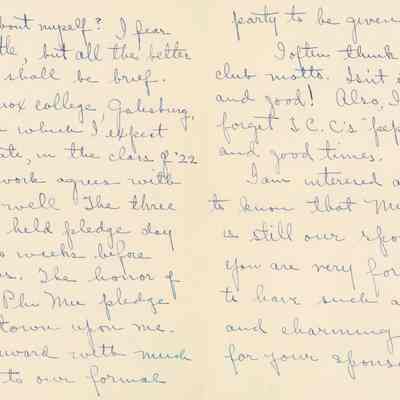 bout myself? I fear
tle, but all the better
shall be brief.
nox college, Galesburg,
which I expect
ate, in the class of '22
work agrees with
well The three
held pledge day
o weeks before
The honor of
Phi Mu pledge
town upon me.
ward with much
to our formal
party to be given
I often think
club motto. Isn't
and good! Also, I
forget I. C. C's "pep
and good times.
I am interested a
to know that
is still our spo
you are very for
to have such a
and charming
for your sponso